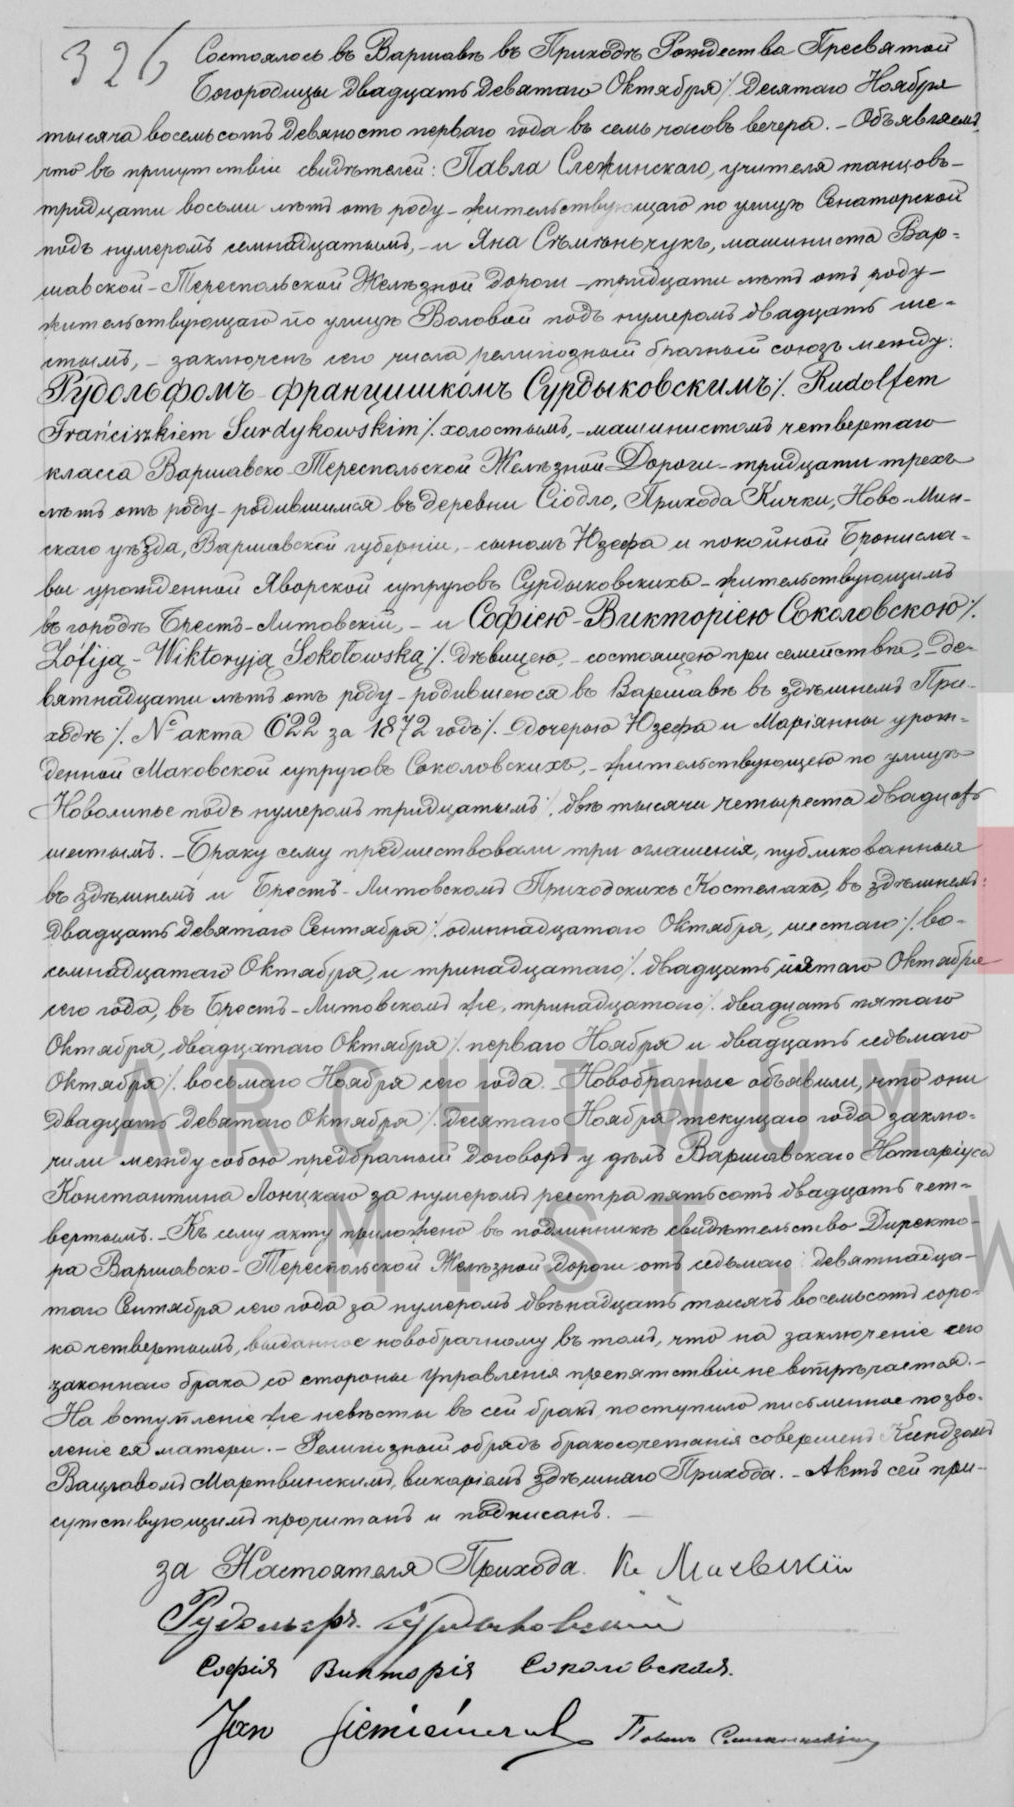 326 Состоялось въ Варшавѣ въ Приходѣ Рождества Пресвятой
Богородицы двадцать девятаго Октября ⁒ десятаго Ноября
тысяча восемьсотъ девяносто перваго года въ семь часовъ вечера. – Объявляемъ,
что въ присутствіи свидѣтелей: Павла Слежинскаго, учителя танцовъ –
тридцати восьми лѣтъ отъ роду – жительствующаго по улицѣ Сенаторской
подъ нумеромъ семнадцатымъ, – и Яна Сѣмѣньчукъ, машиниста Вар=
шавской – Тереспольской Желѣзной Дороги – тридцати лѣтъ отъ роду –
жительствующаго по улицѣ Воловой подъ нумеромъ двадцать ше=
стымъ, – заключенъ сего числа религіозный брачный союзъ между:
Рудольфомъ – Францишкомъ Сурдыковскимъ ⁒ Rudolfem
Franciszkiem Surdykowskim ⁒ холостымъ, – машинистомъ четвертаго
класса Варшавско – Тереспольской Желѣзной Дороги – тридцати трехъ
лѣтъ отъ роду – родившимся въ деревни Сіодло, Прихода Кички, Ново-Мин-
скаго уѣзда, Варшавской губерніи, – сыномъ Юзефа и покойной Бронисла=
вы урожденной Яворской супруговъ Сурдыковскихъ – жительствующимъ
въ городѣ Брестъ-Литовскій, – и Софіею – Викторіею Соколовскою ⁒
Zofiją – Wiktoryją Sokołowską ⁒ дѣвицею, – состоящею при семействѣ, – де=
вятнадцати лѣтъ отъ роду – родившеюся въ Варшавѣ въ здѣшнемъ При=
ходѣ ⁒ № акта 622 за 1872 годъ ⁒ дочерью Юзефа и Маріянны урож=
денной Маковской супруговъ Соколовскихъ, – жительствующею по улицѣ
Новолипье подъ нумеромъ тридцатымъ ⁒ двѣ тысячи четыреста двадцать
шестымъ. – Браку сему предшествовали три оглашенія, публикованныя
въ здѣшнемъ и Брестъ – Литовскомъ Приходскихъ Костелахъ, въ здѣшнемъ:
двадцать девятаго Сентября ⁒ одиннадцатаго Октября, шестаго ⁒ во=
семнадцатаго Октября, и тринадцатаго ⁒ двадцать пятаго Октября
сего года, въ Брестъ – Литовскомъ же, тринадцатаго ⁒ двадцать пятаго
Октября, двадцатаго Октября ⁒ перваго Ноября и двадцать седьмаго
Октября ⁒ восьмаго Ноября сего года. – Новобрачные объявили, что они
двадцать девятаго Октября ⁒ десятаго Ноября текущаго года заклю=
чили между собою предбрачный договоръ у дѣлъ Варшавскаго Нотаріуса
Константина за нумеромъ реестра пятьсотъ двадцать чет=
вертымъ. – Къ сему акту приложено въ подлинникѣ свидѣтельство Директо=
ра Варшавско – Тереспольской Желѣзной Дороги отъ седьмаго ⁒ девятнадца=
таго Сентября сего года за нумеромъ двѣнадцать тысячъ восемьсотъ соро=
ка четвертымъ, выданное новобрачному въ томъ, что на заключеніе сего
законнаго брака со стороны Управленія препятствіи не встрѣчается. –
На вступленіе же невѣсты въ сей бракъ, поступило письменное позво=
леніе ея матери. – Религіозный обрядъ бракосочетанія совершенъ Ксендзомъ
Вацлавомъ Мартвинскимъ, викаріемъ здѣшняго Прихода. – Актъ сей при=
сутствующимъ прочитанъ и подписанъ. –
за Настоятеля Прихода.
Рудольфъ Сурдыковскій
Софія Викторія Соколовская.
Jan Павелъ
ARCHIWUM
M. ST. W